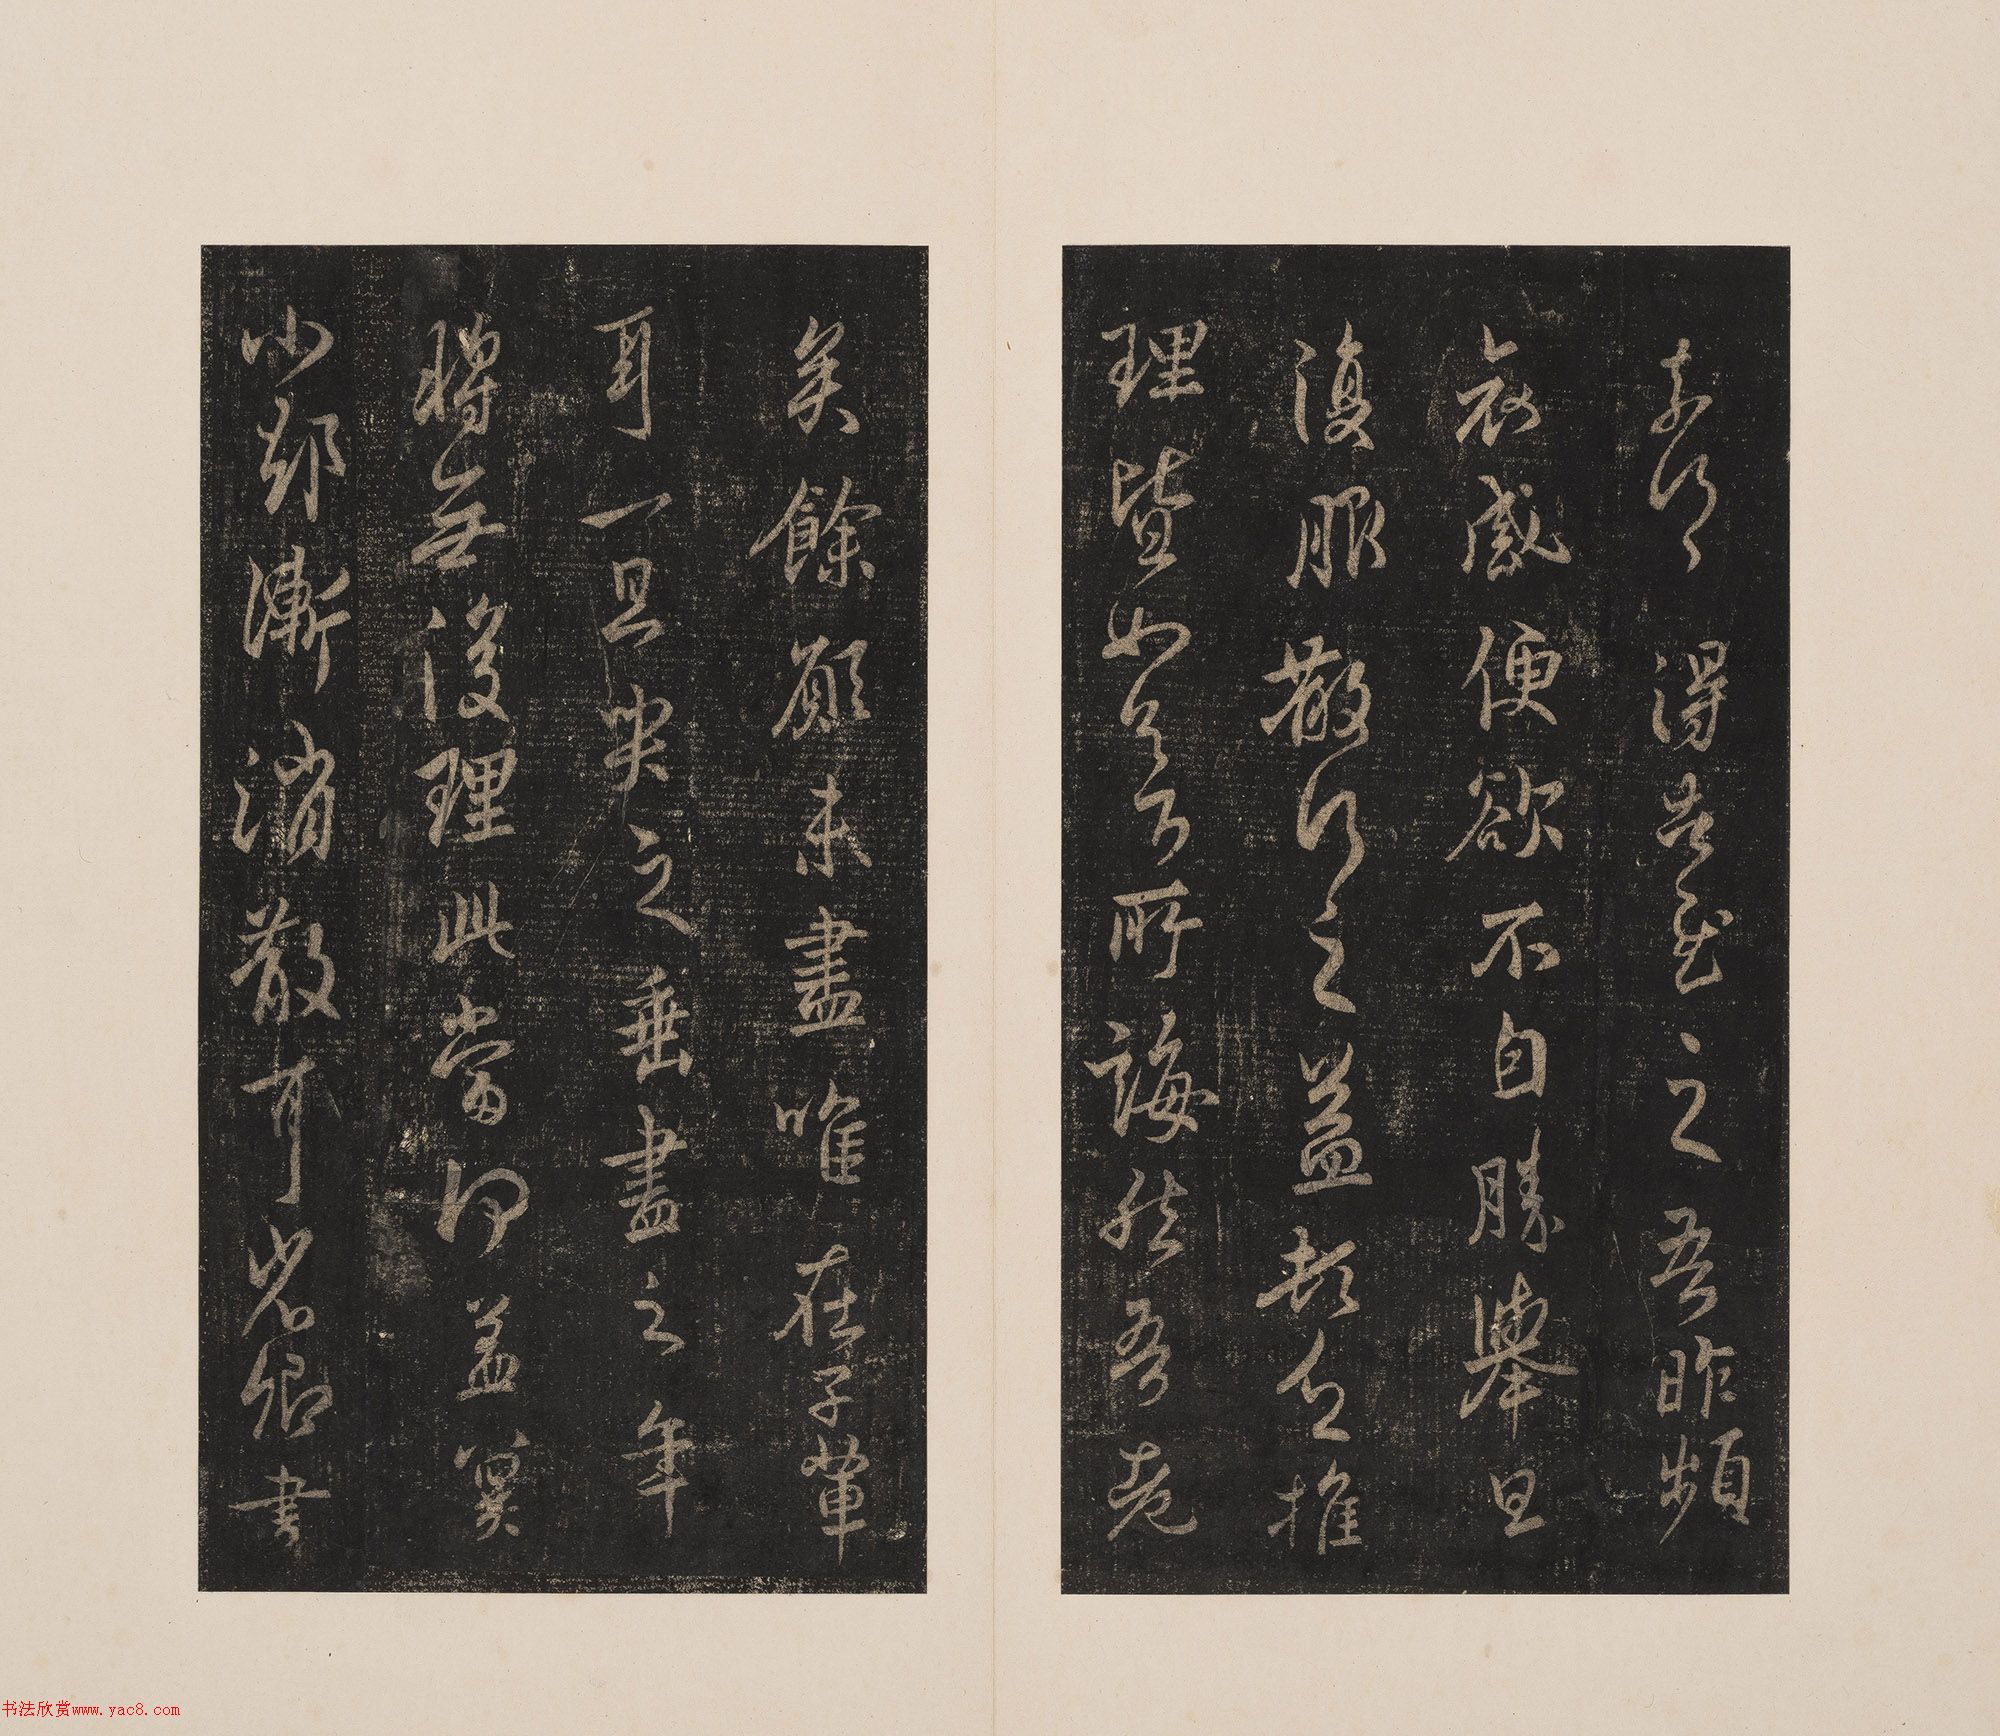 得書慰之吾昨頻
哀感便欲不自勝舉旦
復服散行之益頓乏推
理皆如足下所誨然吾老
矣餘願未盡唯在子輩
耳一旦哭之垂盡之年
將無復理此當何益冀
小却漸消散耳省卿書
书法欣赏www.yac8.com